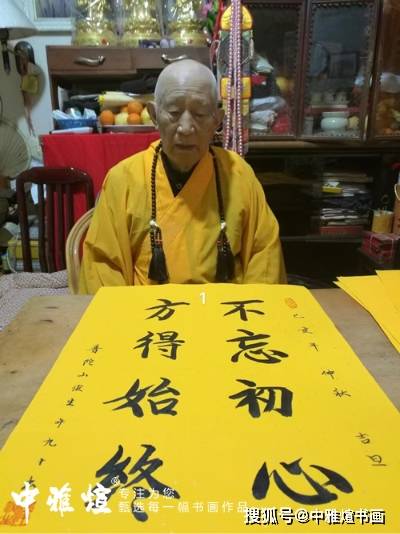 己亥年 仲秋 吉旦
不忘初心
方得始終
普陀山 生 年九十
1
中雅煊®
专注为您
甄选每一幅书画作品
搜狐号@中雅煊书画